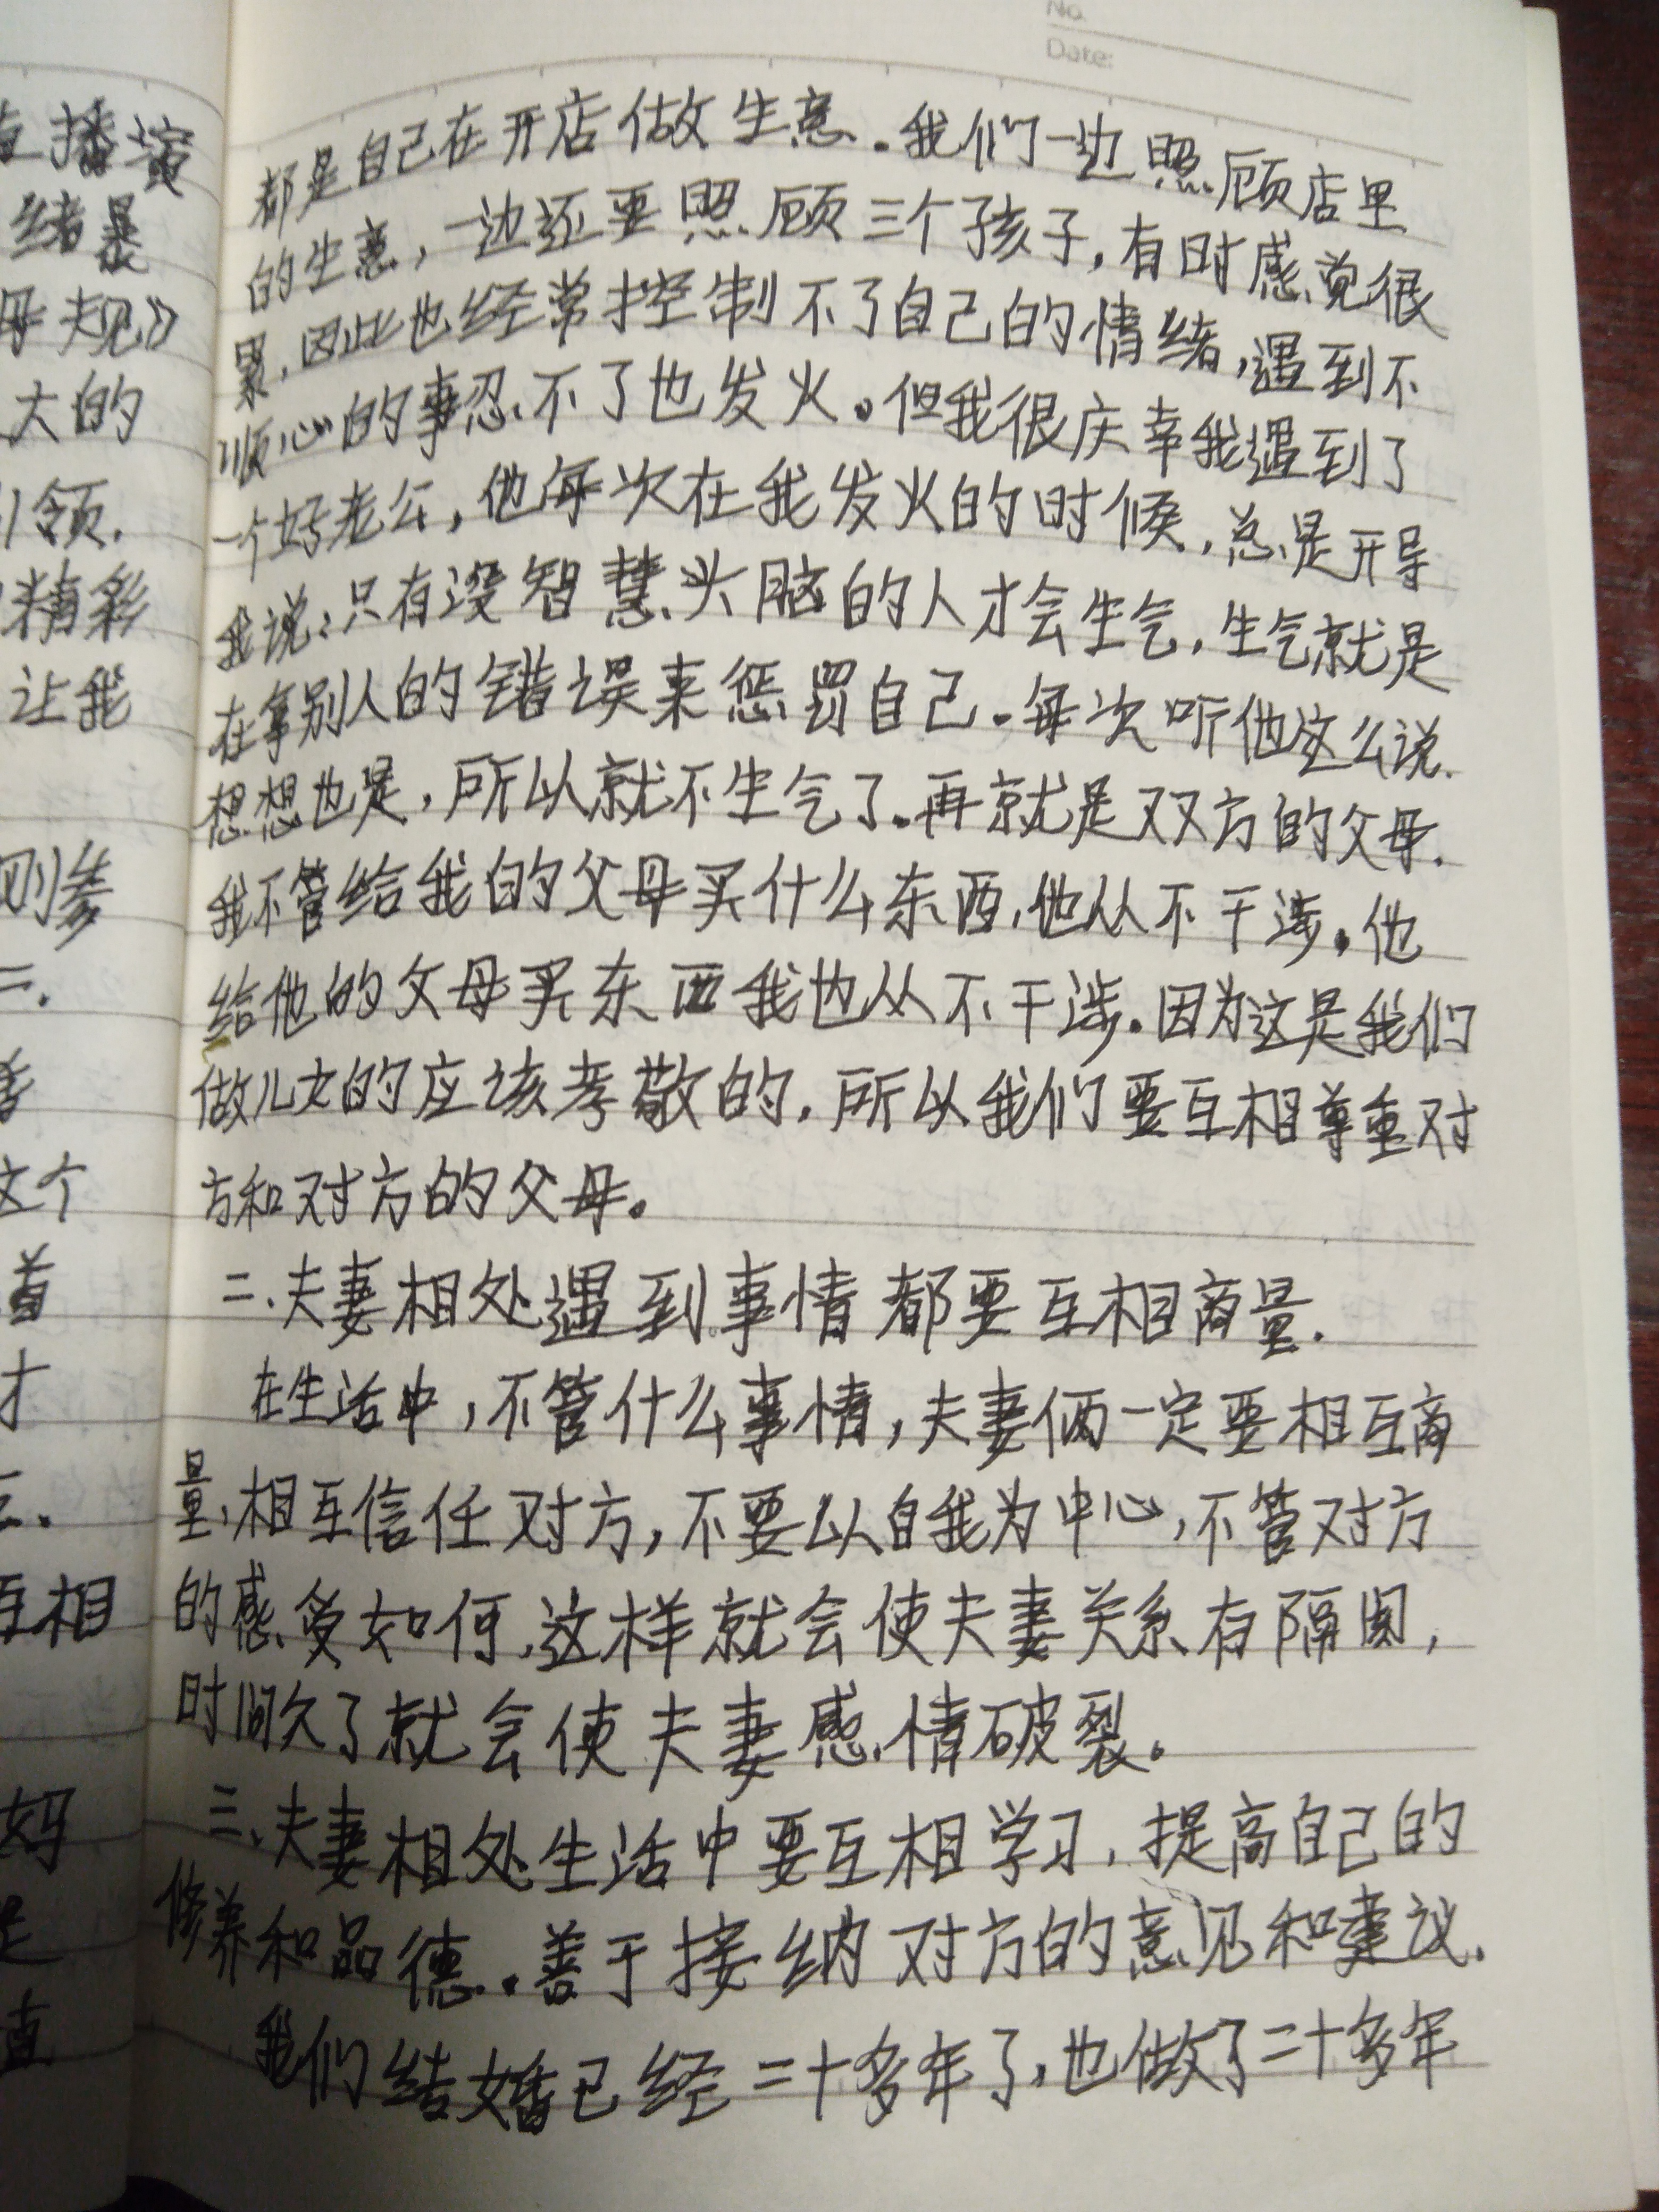 No.
Date:
都是自己在开店做生意.我们一边照顾店里
的生意,一边还要照顾三个孩子,有时感觉很
累,因此也经常控制不了自己的情绪,遇到不
顺心的事忍不了也发火。但我很庆幸我遇到了
一个好老公,他每次在我发火的时候,总是开导
我说:只有没智慧头脑的人才会生气,生气就是
在拿别人的错误来惩罚自己.每次听他这么说.
想想也是,所以就不生气了.再就是双方的父母.
我不管给我的父母买什么东西,他从不干涉.他
给他的父母买东西我也从不干涉.因为这是我们
做儿女的应该孝敬的,所以我们要互相尊重对
方和对方的父母。
二、夫妻相处遇到事情都要互相商量.
在生活中,不管什么事情,夫妻俩一定要相互商
量,相互信任对方,不要以自我为中心,不管对方
的感受如何,这样就会使夫妻关系有隔阂,
时间久了就会使夫妻感情破裂。
三、夫妻相处生活中要互相学习,提高自己的
修养和品德.善于接纳对方的意见和建议.
我们结婚已经二十多年了,也做了二十多年
直播演
绪暴
母规》
大的
引领.
精彩
让我
刚参
二.
这个
首
才
互相
妈
是
直